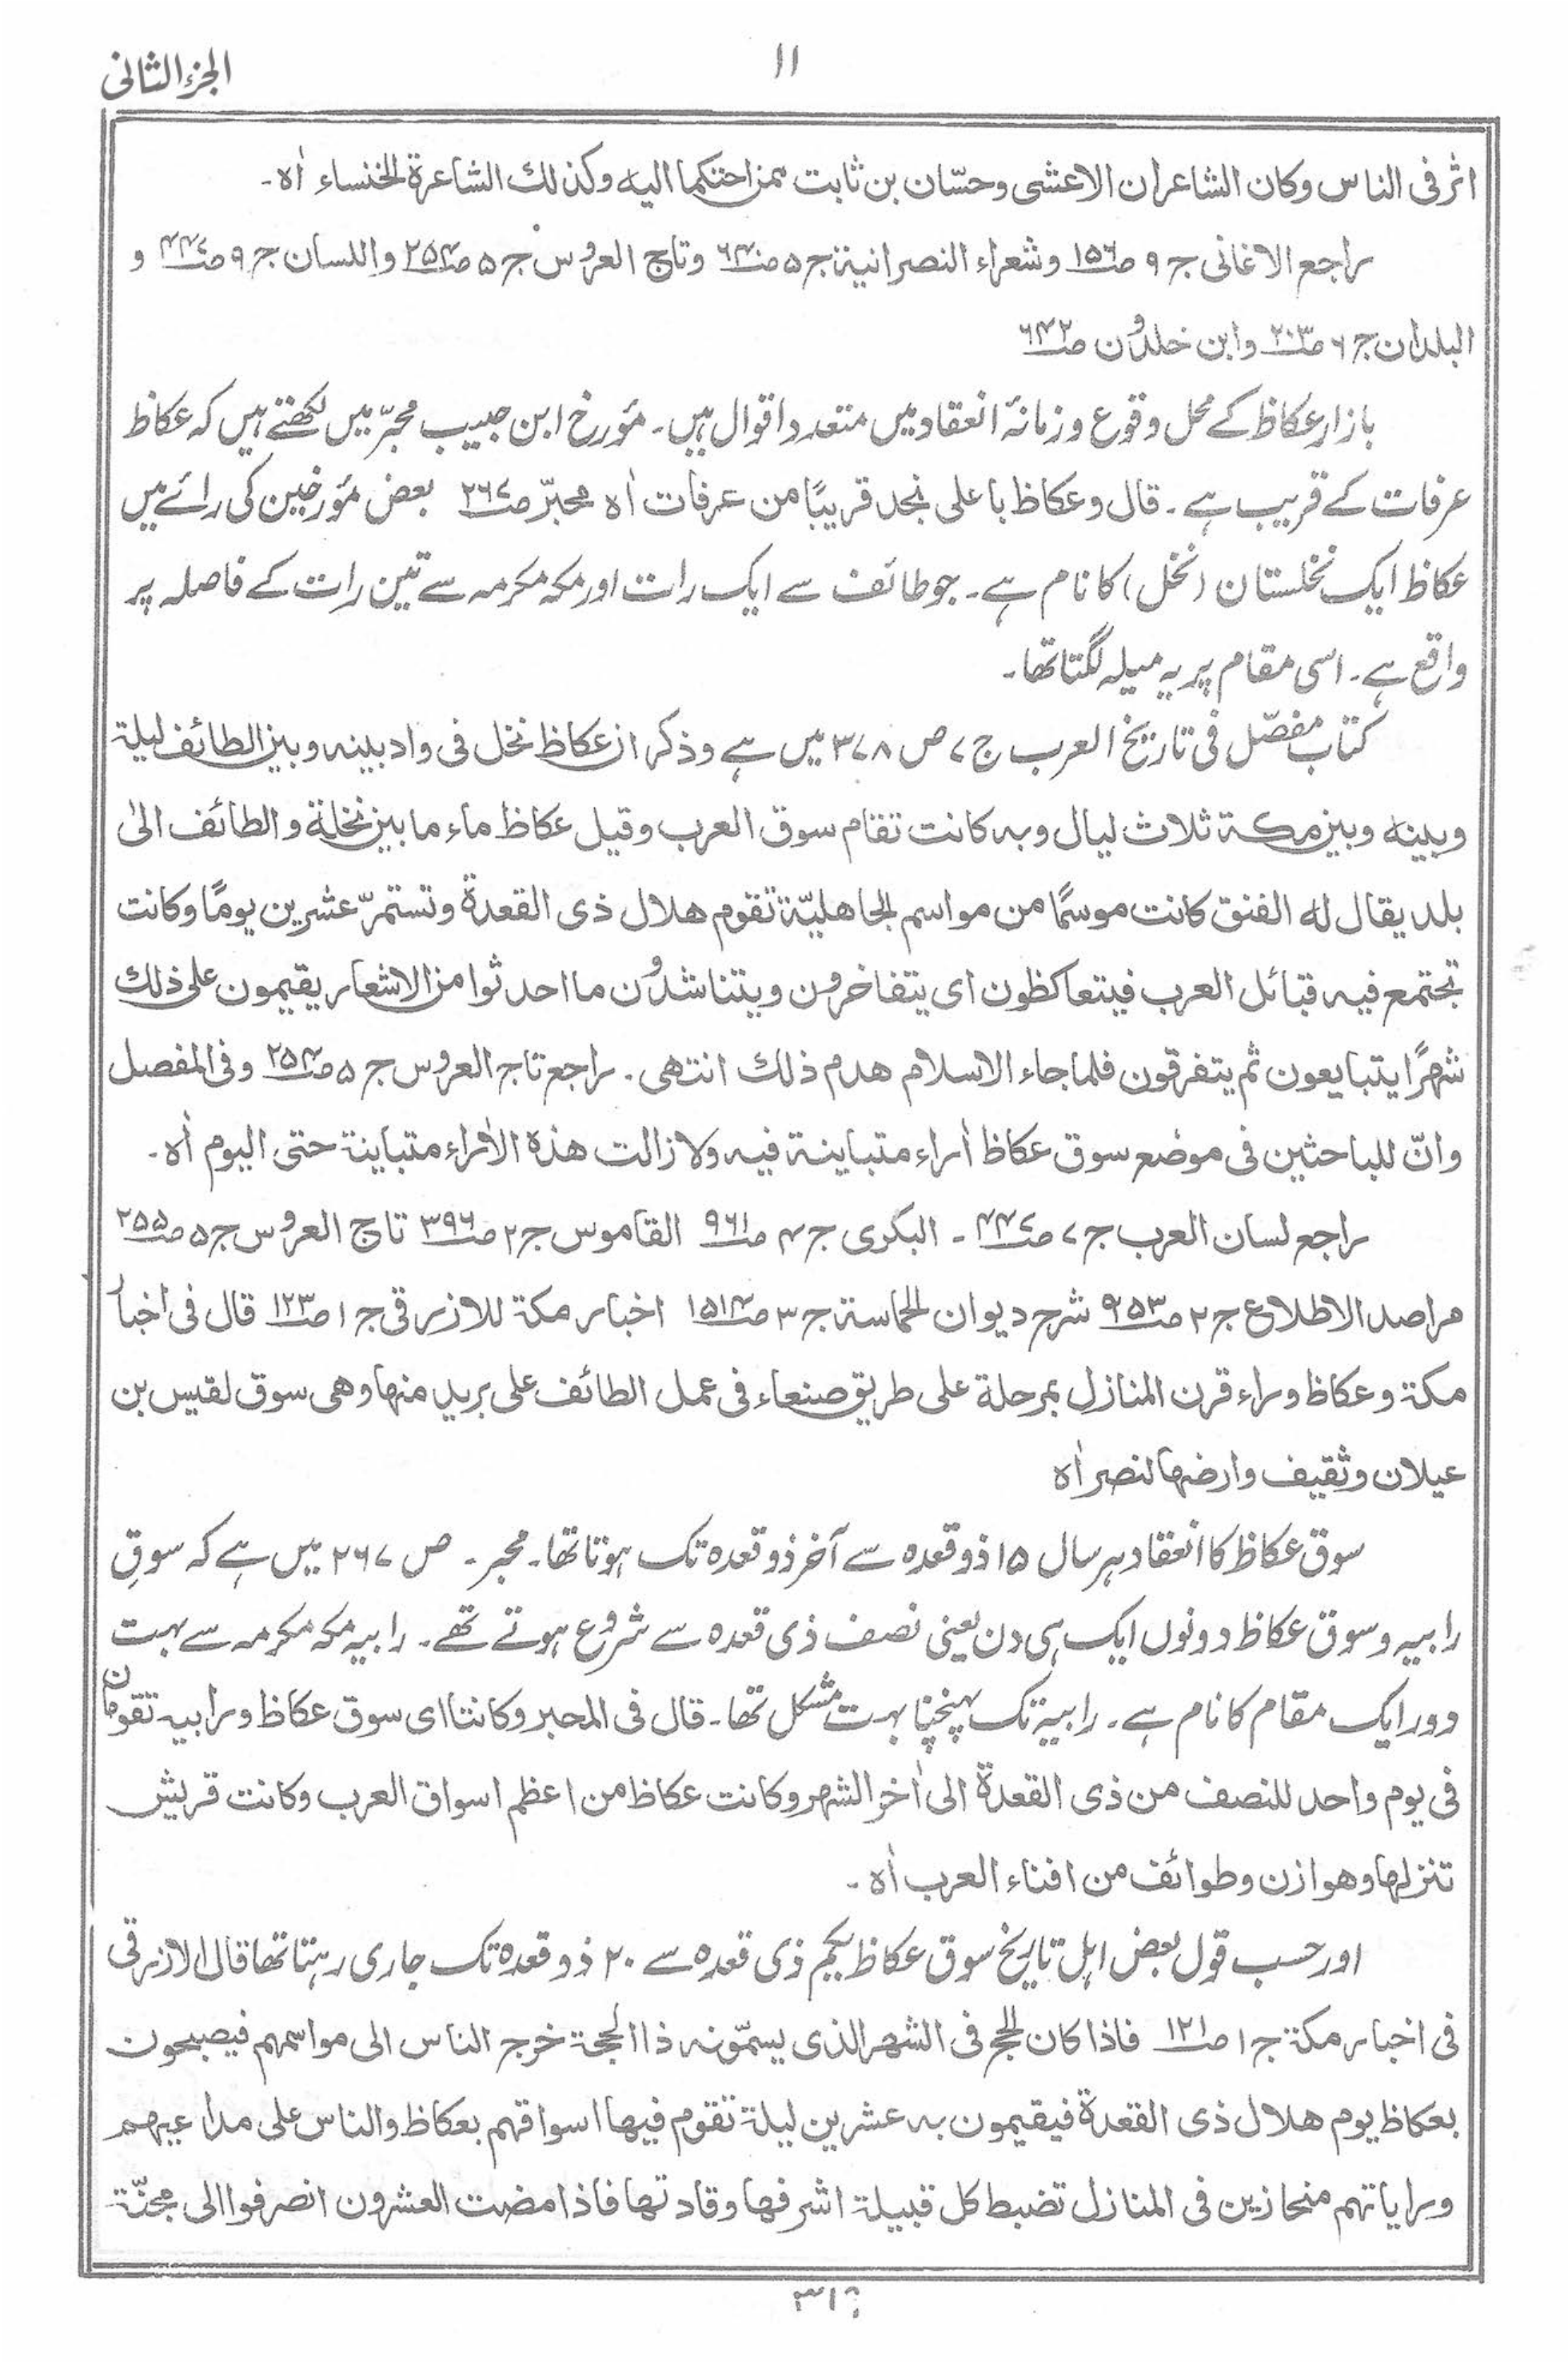 الجزء الثانی
۱۱
اثر فی الناس وکان الشاعران الاعشی وحسّان بن ثابت ممن احتکما الیہ وکذلک الشاعرۃ الخنساء اٰہ۔
راجع الاغانی ج ۹ ص۱۵۶ وشعراء النصرانیۃ ج ۵ ص۶۴۰ وتاج العروس ج ۵ ص۲۵۴ واللسان ج ۹ ص۴۴۷ و
البلدان ج ۶ ص۲۰۳ وابن خلدون ص۶۴۲
بازارِ عکاظ کے محل وقوع و زمانۂ انعقاد میں متعدد اقوال ہیں۔ مؤرخ ابن حبیب محبّر میں لکھتے ہیں کہ عکاظ
عرفات کے قریب ہے۔ قال وعکاظ باعلی نجد قریبًا من عرفات اٰہ محبّر ص۲۶۷ بعض مؤرخین کی رائے میں
عکاظ ایک نخلستان (نخل) کا نام ہے۔ جو طائف سے ایک رات اور مکہ مکرمہ سے تین رات کے فاصلہ پر
واقع ہے۔ اسی مقام پر یہ میلہ لگتا تھا۔
کتاب مفصّل فی تاریخ العرب ج ۷ ص ۳۷۸ میں ہے وذکر ان عکاظ نخل فی واد بینہ وبین الطائف لیلۃ
وبینہ وبین مکۃ ثلاث لیال وبہ کانت تقام سوق العرب وقیل عکاظ ماء ما بین نخلۃ والطائف الیٰ
بلد یقال لہ الفنق کانت موسمًا من مواسم الجاھلیّۃ تقوم ھلال ذی القعدۃ وتستمرّ عشرین یومًا وکانت
تجتمع فیہ قبائل العرب فیتعاکظون ای یتفاخرون ویتناشدون ما احدثوا من الاشعار یقیمون علی ذلک
شھرًا یتبایعون ثم یتفرقون فلما جاء الاسلام ھدم ذلک انتھی۔ راجع تاج العروس ج ۵ ص۲۵۴ وفی المفصل
وانّ للباحثین فی موضع سوق عکاظ اٰراء متباینۃ فیہ ولا زالت ھذہ الاٰراء متباینۃ حتی الیوم اٰہ۔
راجع لسان العرب ج ۷ ص۴۴۷ ۔ البکری ج ۳ ص۹۶۱ القاموس ج ۲ ص۳۹۶ تاج العروس ج ۵ ص۲۵۵
مراصد الاطلاع ج ۲ ص۹۵۳ شرح دیوان الحماسۃ ج ۳ ص۱۵۱۴ اخبار مکۃ للازرقی ج ۱ ص۱۲۳ قال فی اخبار
مکۃ وعکاظ وراء قرن المنازل بمرحلۃ علی طریق صنعاء فی عمل الطائف علی برید منھا وھی سوق لقیس بن
عیلان وثقیف وارضھا لنصر اٰہ
سوق عکاظ کا انعقاد ہر سال ۱۵ ذوقعدہ سے آخر ذوقعدہ تک ہوتا تھا۔ محبر۔ ص ۲۶۷ میں ہے کہ سوقِ
رابیہ و سوق عکاظ دونوں ایک ہی دن یعنی نصف ذی قعدہ سے شروع ہوتے تھے۔ رابیہ مکہ مکرمہ سے بہت
دور ایک مقام کا نام ہے۔ رابیۃ تک پہنچنا بہت مشکل تھا۔ قال فی المحبر وکانتا ای سوق عکاظ ورابیہ تقومان
فی یوم واحد للنصف من ذی القعدۃ الی اٰخر الشھر وکانت عکاظ من اعظم اسواق العرب وکانت قریش
تنزلھا وھوازن وطوائف من افناء العرب اٰہ۔
اور حسب قول بعض اہل تاریخ سوق عکاظ یکم ذی قعدہ سے ۲۰ ذوقعدہ تک جاری رہتا تھا قال الازرقی
فی اخبار مکۃ ج ۱ ص۱۲۱ فاذا کان الحج فی الشھر الذی یسمّونہ ذا الحجۃ خرج الناس الی مواسمھم فیصبحون
بعکاظ یوم ھلال ذی القعدۃ فیقیمون بہ عشرین لیلۃ تقوم فیھا اسواقھم بعکاظ والناس علی مداعیھم
ورایاتھم منحازین فی المنازل تضبط کل قبیلۃ اشرفھا وقادتھا فاذا مضت العشرون انصرفوا الی مجنّۃ